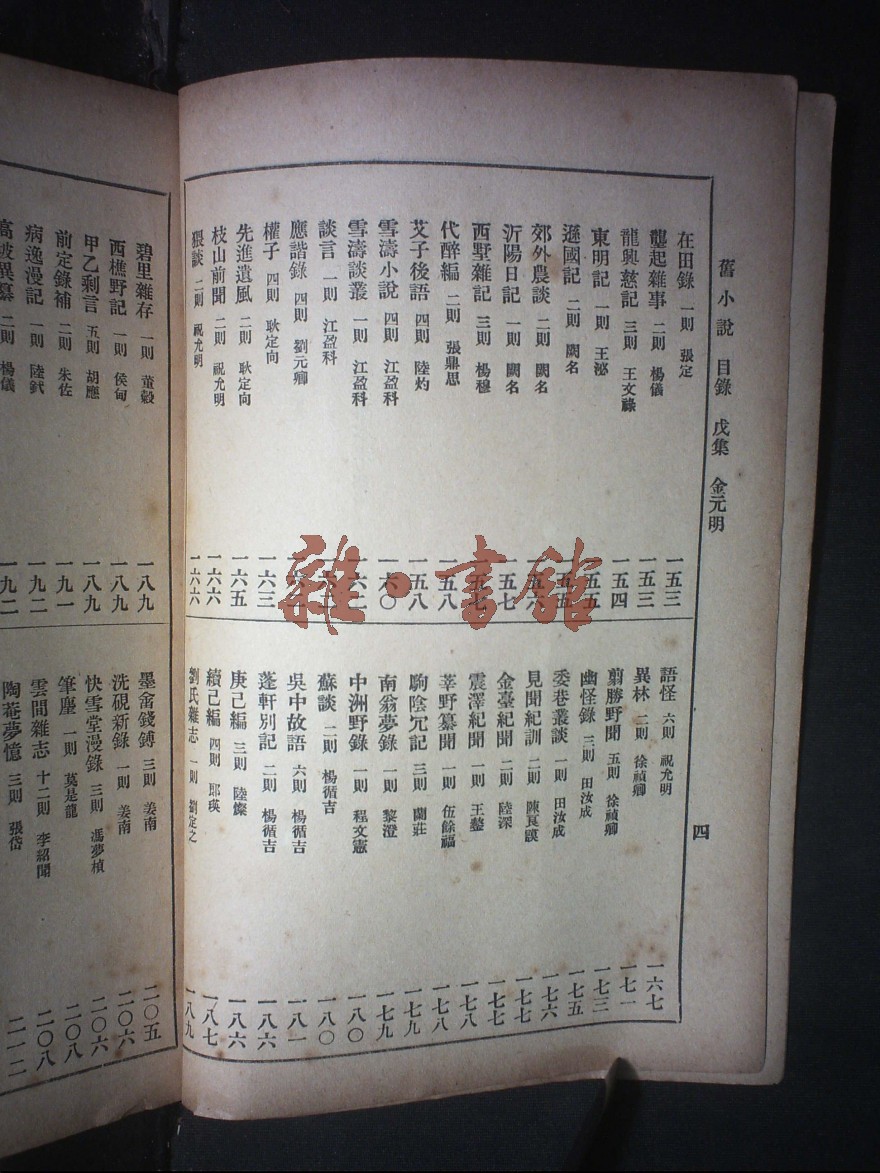 舊小說 目錄 戊集 金元明
四
在田錄 一則 張定 一五三
龔起雜事 二則 楊儀 一五三
龍興慈記 三則 王文祿 一五四
東明記 一則 王泌 一五五
遜國記 二則 闕名 一五五
郊外農談 二則 闕名 一五六
沂陽日記 一則 闕名 一五七
西墅雜記 三則 楊穆 一五七
代醉編 二則 張鼎思 一五八
艾子後語 四則 陸灼 一五八
雪濤小說 四則 江盈科 一六〇
雪濤談叢 一則 江盈科 一六二
談言 一則 江盈科
應諧錄 四則 劉元卿
權子 四則 耿定向 一六三
先進遺風 二則 耿定向 一六五
枝山前聞 二則 祝允明 一六六
猥談 二則 祝允明 一六六
語怪 六則 祝允明 一六七
異林 二則 徐禎卿 一七一
翦勝野聞 五則 徐禎卿 一七三
幽怪錄 三則 田汝成 一七五
委巷叢談 一則 田汝成 一七六
見聞紀訓 二則 陳良謨 一七七
金臺紀聞 二則 陸深 一七七
震澤紀聞 一則 王鏊 一七八
莘野纂聞 一則 伍餘福 一七八
駒陰冗記 三則 闌莊 一七九
南翁夢錄 一則 黎澄 一七九
中洲野錄 一則 程文憲 一八〇
蘇談 二則 楊循吉 一八〇
吳中故語 六則 楊循吉 一八一
蓬軒別記 二則 楊循吉 一八六
庚己編 三則 陸燦 一八六
續己編 四則 郎瑛 一八七
劉氏雜志 一則 劉定之 一八九
碧里雜存 一則 董穀 一八九
西樵野記 一則 侯甸 一八九
甲乙剩言 五則 胡應 一八九
前定錄補 二則 朱佐 一九一
病逸漫記 一則 陸釴 一九二
高坡異纂 二則 楊儀 一九二
墨畬錢鎛 三則 姜南 二〇五
洗硯新錄 一則 姜南 二〇六
快雪堂漫錄 三則 馮夢楨 二〇六
筆麈 一則 莫是龍 二〇八
雲間雜志 十二則 李紹聞 二〇八
陶菴夢憶 三則 張岱 二一二
雜·書館